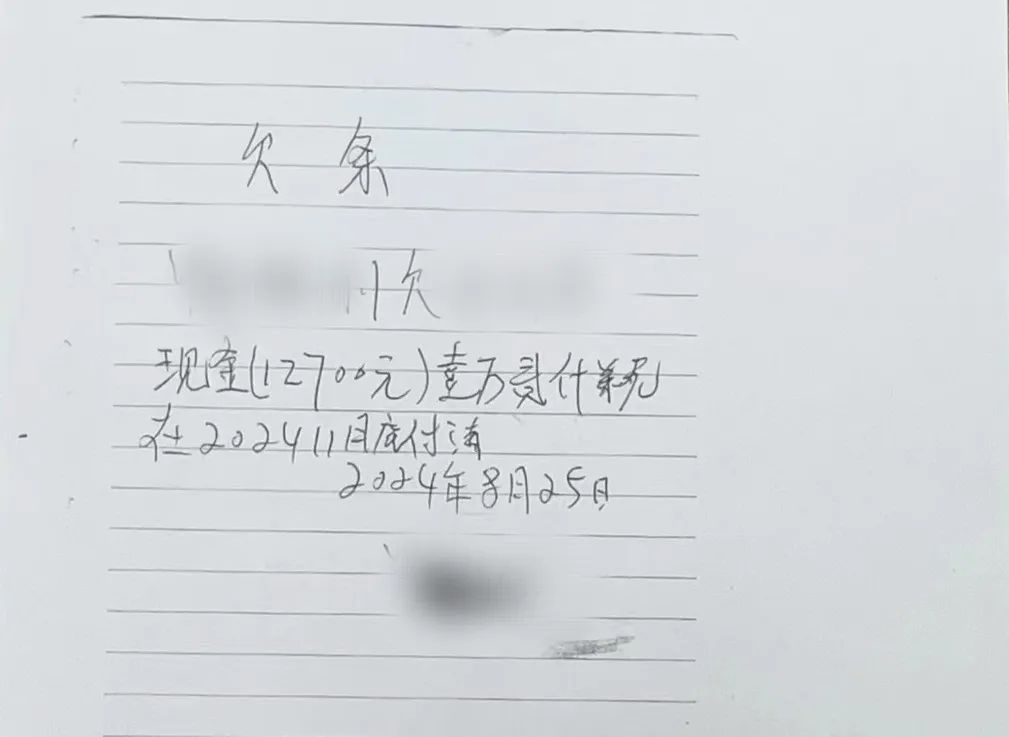 欠条
欠
现金(12700元)壹万贰仟
在202411月底付清
2024年8月25日